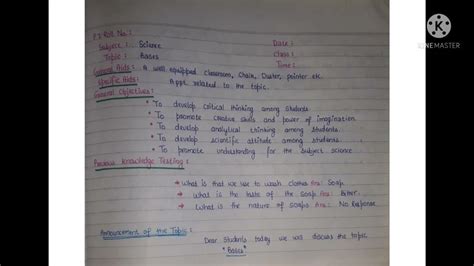 P.T Roll No:
Subject: Science
Date:
Topic: Bases
Class:
General Aids: A well equipped classroom, Chair, Duster, pointer etc.
Time:
Specific Aids: App. related to the topic.
General Objectives:
• To develop critical thinking among students.
• To promote creative skills and power of imagination
• To develop analytical thinking among students.
• To develop scientific attitude among students.
• To promote understanding for the subject science
Previous Knowledge Testing:
→ What is that we use to wash clothes Ans: Soap.
→ what is the taste of the soap Ans: Bitter.
→ What is the nature of soaps Ans: No Response.
Announcement of the Topic:
Dear Students today we will discuss the topic
"Bases"
KINEMASTER